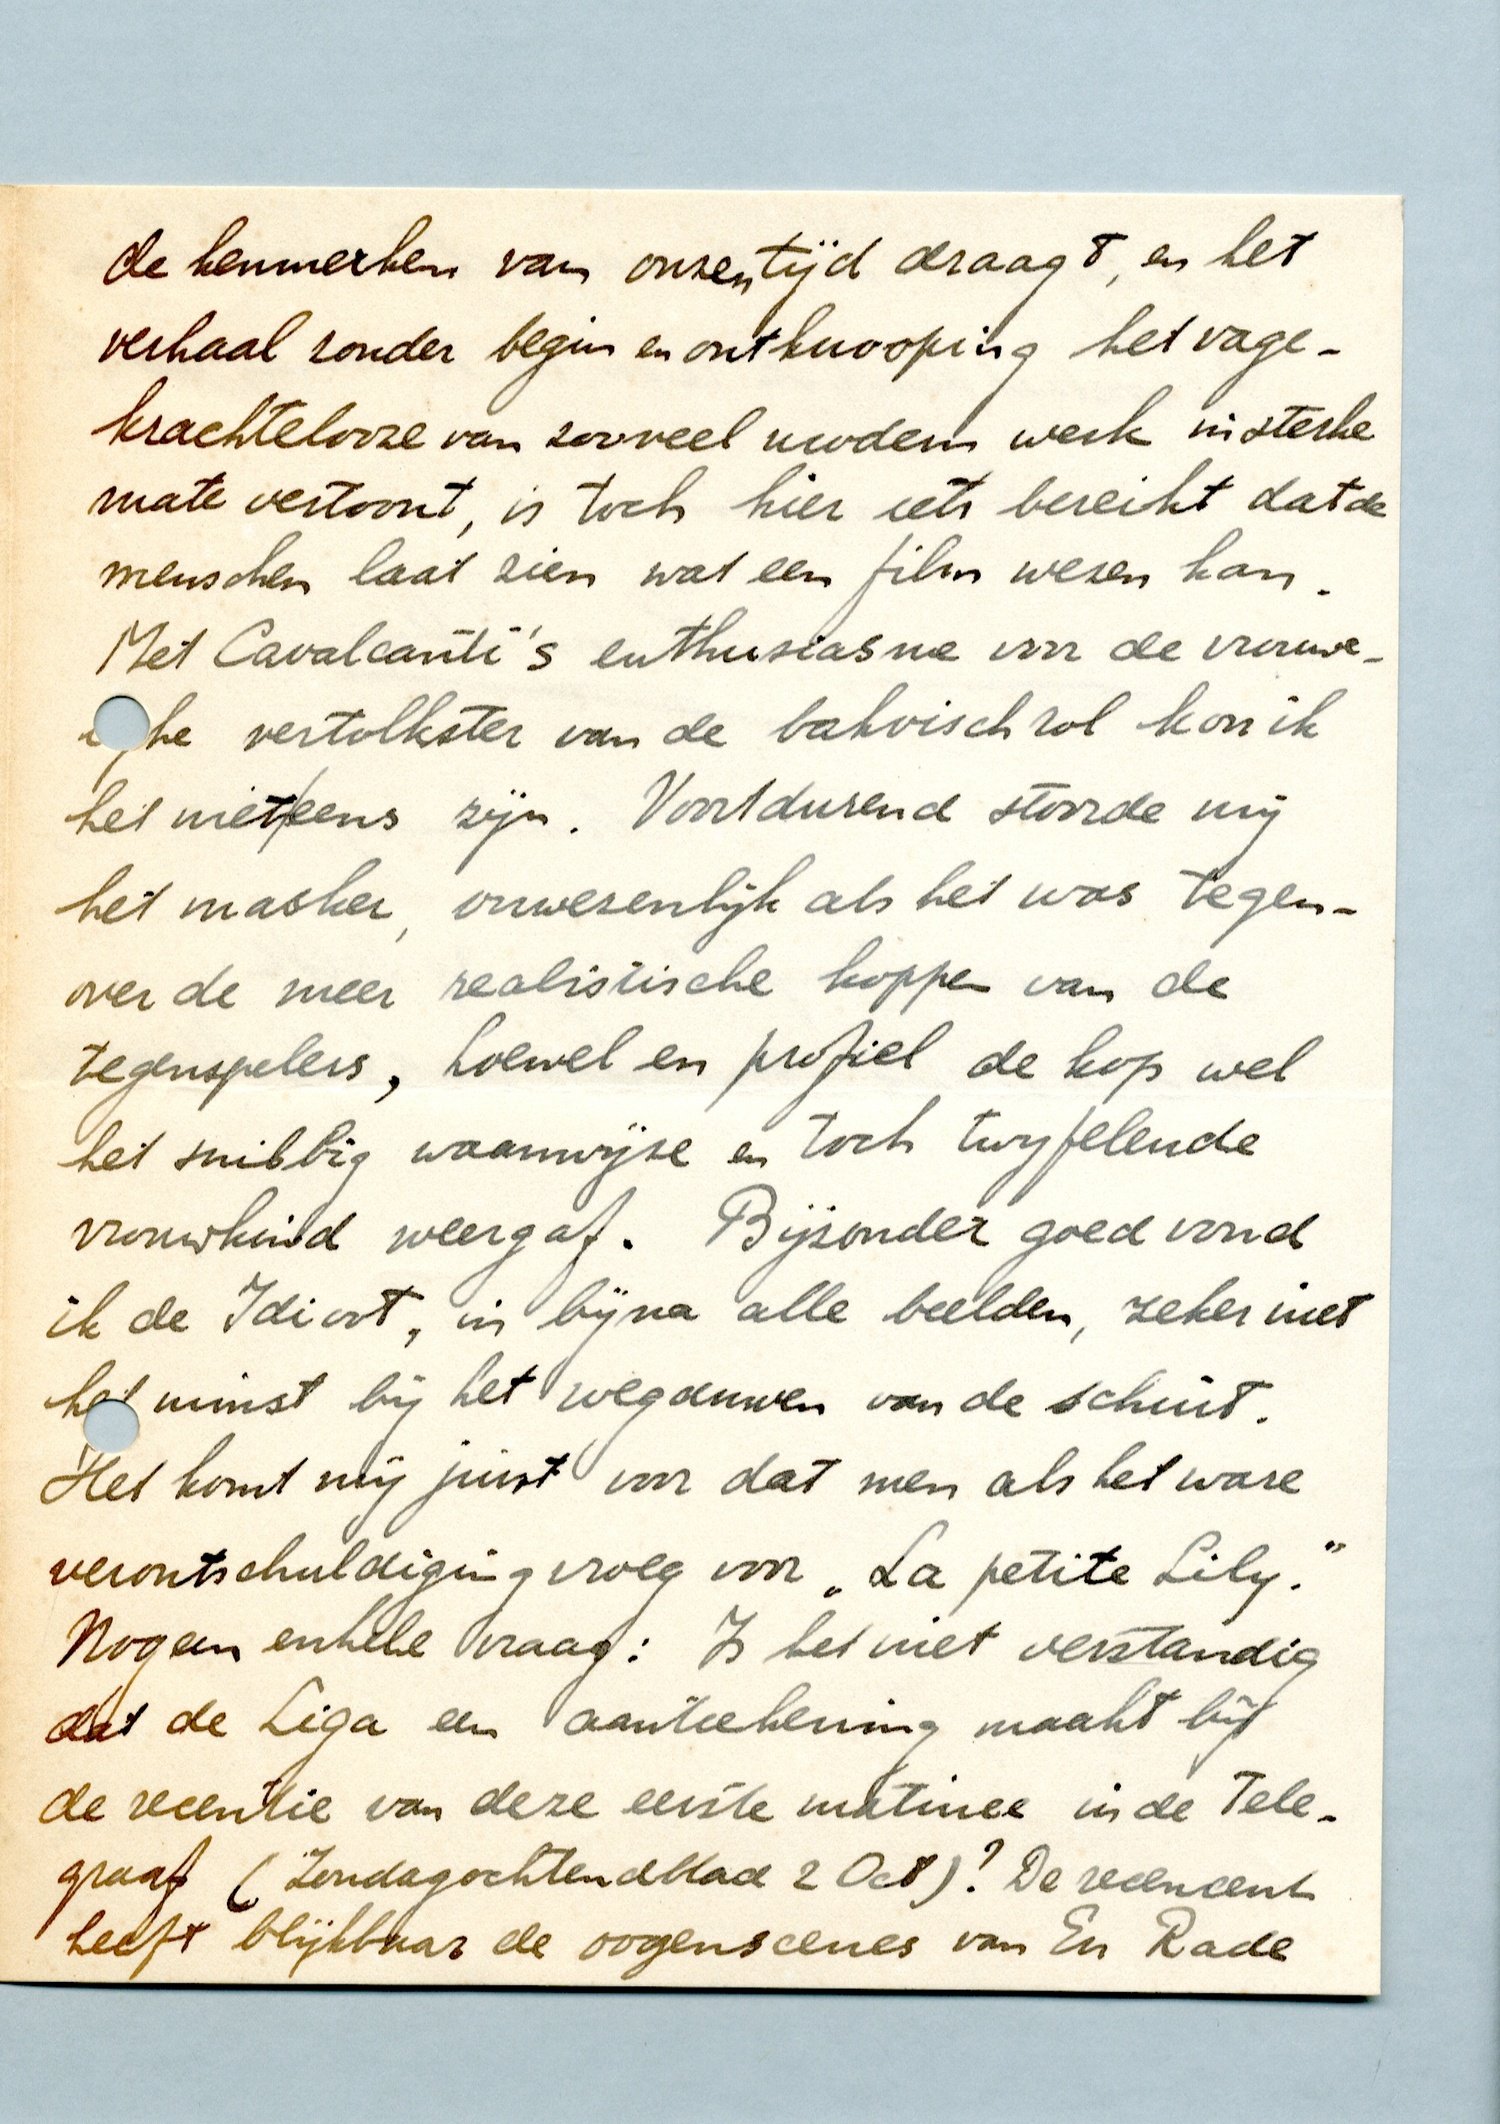 de kenmerken van onzen tijd draagt, en het
verhaal zonder begin en ontknooping het vage-
krachtelooze van zooveel modern werk in sterke
mate vertoont, is toch hier iets bereikt dat de
menschen laat zien wat een film wezen kan.
Met Cavalcanti's enthusiasme voor de vrouwe-
ijke vertolkster van de bakvischrol kon ik
het niet eens zijn. Voortdurend stoorde mij
het masker, onwezenlijk als het was tegen-
over de meer realistische koppen van de
tegenspelers, hoewel en profiel de kop wel
het snibbig waanwijze en toch twijfelende
vrouwkind weergaf. Bijzonder goed vond
ik de Idioot, in bijna alle beelden, zeker niet
het minst bij het wegduwen van de schuit.
Het komt mij juist voor dat men als het ware
verontschuldiging vroeg voor „La petite Lily."
Nog een enkele vraag: Is het niet verstandig
dat de Liga een aanteekening maakt bij
de recentie van deze eerste matinee in de Tele-
graaf (Zondagochtendblad 2 Oct)? De recencent
heeft blijkbaar de oogenscenes van En Rade